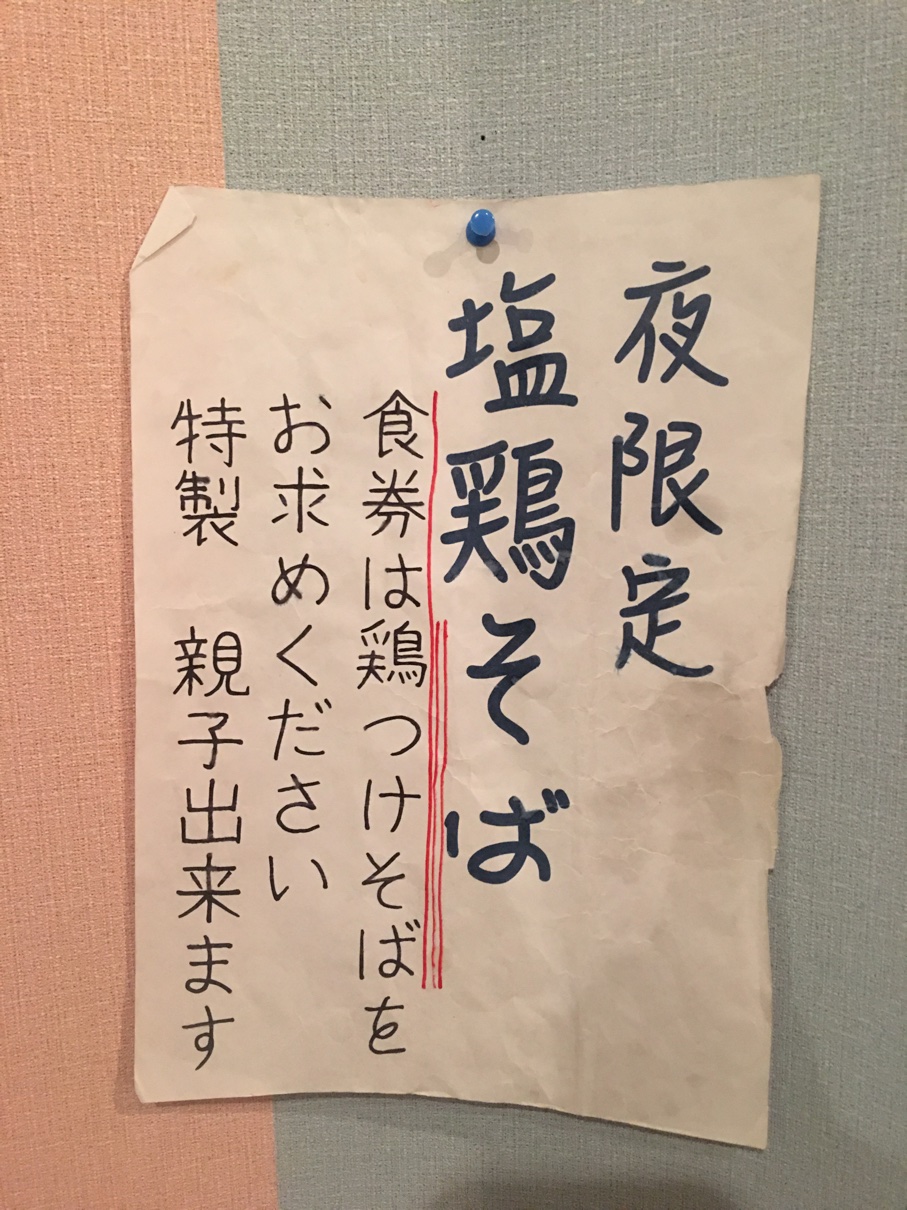 夜限定
塩鶏そば
食券は鶏つけそばを
お求めください
特製　親子出来ます